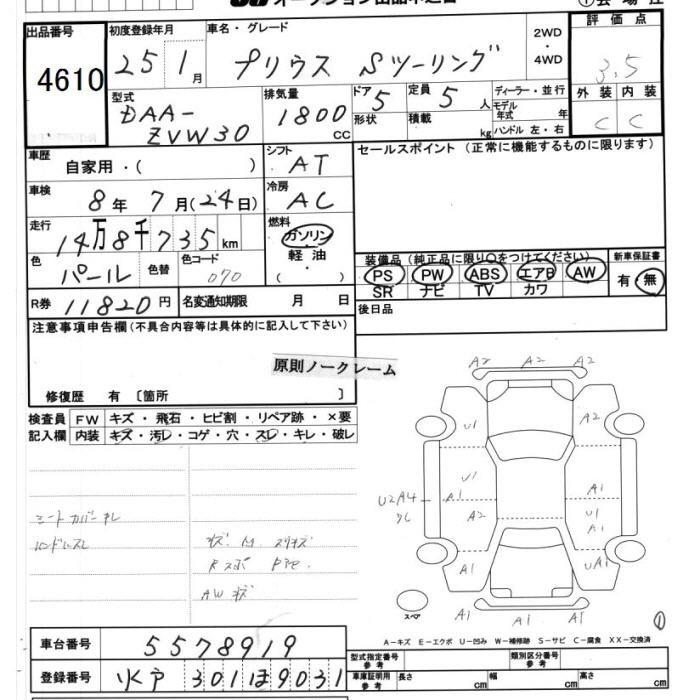 ①会場控
出品番号
4610
初度登録年月
25 1月
車名・グレード
プリウス Sツーリング
2WD
・
4WD
評価点
3.5
外装 内装
C C
型式
DAA-
ZVW30
排気量
1800
cc
ドア
5
形状
定員
5人
積載
kg
ディーラー・並行
モデル年式 年
ハンドル 左・右
車歴
自家用・( )
シフト
AT
セールスポイント (正常に機能するものに限ります)
車検
8年 7月(24日)
冷房
AC
走行
14万8千735km
燃料
ガソリン
軽油
・
( )
色
パール
色替
色コード
070
装備品 (純正品に限り○をつけてください)
PS PW ABS エアB AW
SR ナビ TV カワ
新車保証書
有・無
R券 11820円
名変通知期限 月 日
後日品
注意事項申告欄(不具合内容等は具体的に記入して下さい)
原則ノークレーム
修復歴 有 [箇所 ]
検査員
記入欄
FW キズ・飛石・ヒビ割・リペア跡・×要
内装 キズ・汚レ・コゲ・穴・スレ・キレ・破レ
シートカバーキレ
ハンドルスレ
AWキズ
A2 A2 A2
U1
A2
U1
A1
A2
A1
A1
U1
A1
U2A4
A1
UA1
スペア
A1 A1 A1
①
A-キズ E-エクボ U-凹み W-補修跡 S-サビ C-腐食 XX-交換済
車台番号
5578919
登録番号
水戸 301 ほ 9031
型式指定番号
参考
類別区分番号
参考
車庫証明用
参考
長さ cm
幅 cm
高さ cm